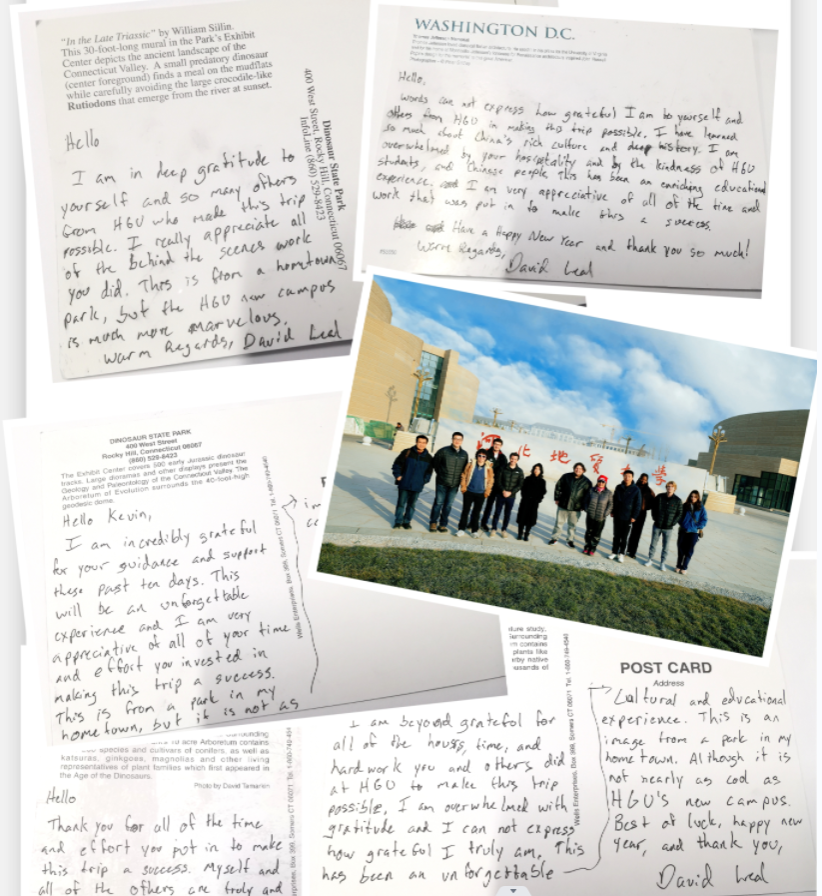 "In the Late Triassic" by William Sillin.
This 30-foot-long mural in the Park's Exhibit
Center depicts the ancient landscape of the
Connecticut Valley. A small predatory dinosaur
(center foreground) finds a meal on the mudflats
while carefully avoiding the large crocodile-like
Rutiodons that emerge from the river at sunset.
Dinosaur State Park
400 West Street, Rocky Hill, Connecticut 06067
InfoLine (860) 529-8423
Hello
I am in deep gratitude to
yourself and so many others
from HGU who made this trip
possible. I really appreciate all
of the behind the scenes work
you did. This is from a hometown
park, but the HGU new campus
is much more marvelous.
Warm Regards, David Leal
WASHINGTON D.C.
Hello,
words can not express how grateful I am to yourself and
others from HGU in making this trip possible. I have learned
so much about China's rich culture and deep history. I am
overwhelmed by your hospitality and by the kindness of HGU
students, and Chinese people. This has been an enriching educational
experience, and I am very appreciative of all of the time and
work that was put in to make this a success.
Have a Happy New Year and thank you so much!
Warm Regards,
David Leal
河北地质大学
DINOSAUR STATE PARK
400 West Street
Rocky Hill, Connecticut 06067
(860) 529-8423
The Exhibit Center covers 500 early Jurassic dinosaur
tracks. Large dioramas and other displays present the
Geology and Paleontology of the Connecticut Valley. The
Arboretum of Evolution surrounds the 40-foot-high
geodesic dome.
Hello Kevin,
I am incredibly grateful
for your guidance and support
these past ten days. This
will be an unforgettable
experience and I am very
appreciative of all of your time
and effort you invested in
making this trip a success.
This is from a park in my
hometown, but it is not as
Wells Enterprises, Box 399, Somers CT 06071 Tel. 1-860-749-4540
acre Arboretum contains
species and cultivars of conifers, as well as
katsuras, ginkgoes, magnolias and other living
representatives of plant families which first appeared in
the Age of the Dinosaurs.
Photo by David Tamarin
Hello
Thank you for all of the time
and effort you put in to make
this trip a success. Myself and
all of the others are truly and
I am beyond grateful for
all of the hours, time, and
hard work you and others did
at HGU to make this trip
possible. I am overwhelmed with
gratitude and I can not express
how grateful I truly am. This
has been an unforgettable
POST CARD
Address
Cultural and educational
experience. This is an
image from a park in my
home town. Although it is
not nearly as cool as
HGU's new campus.
Best of luck, happy new
year, and thank you,
David Leal